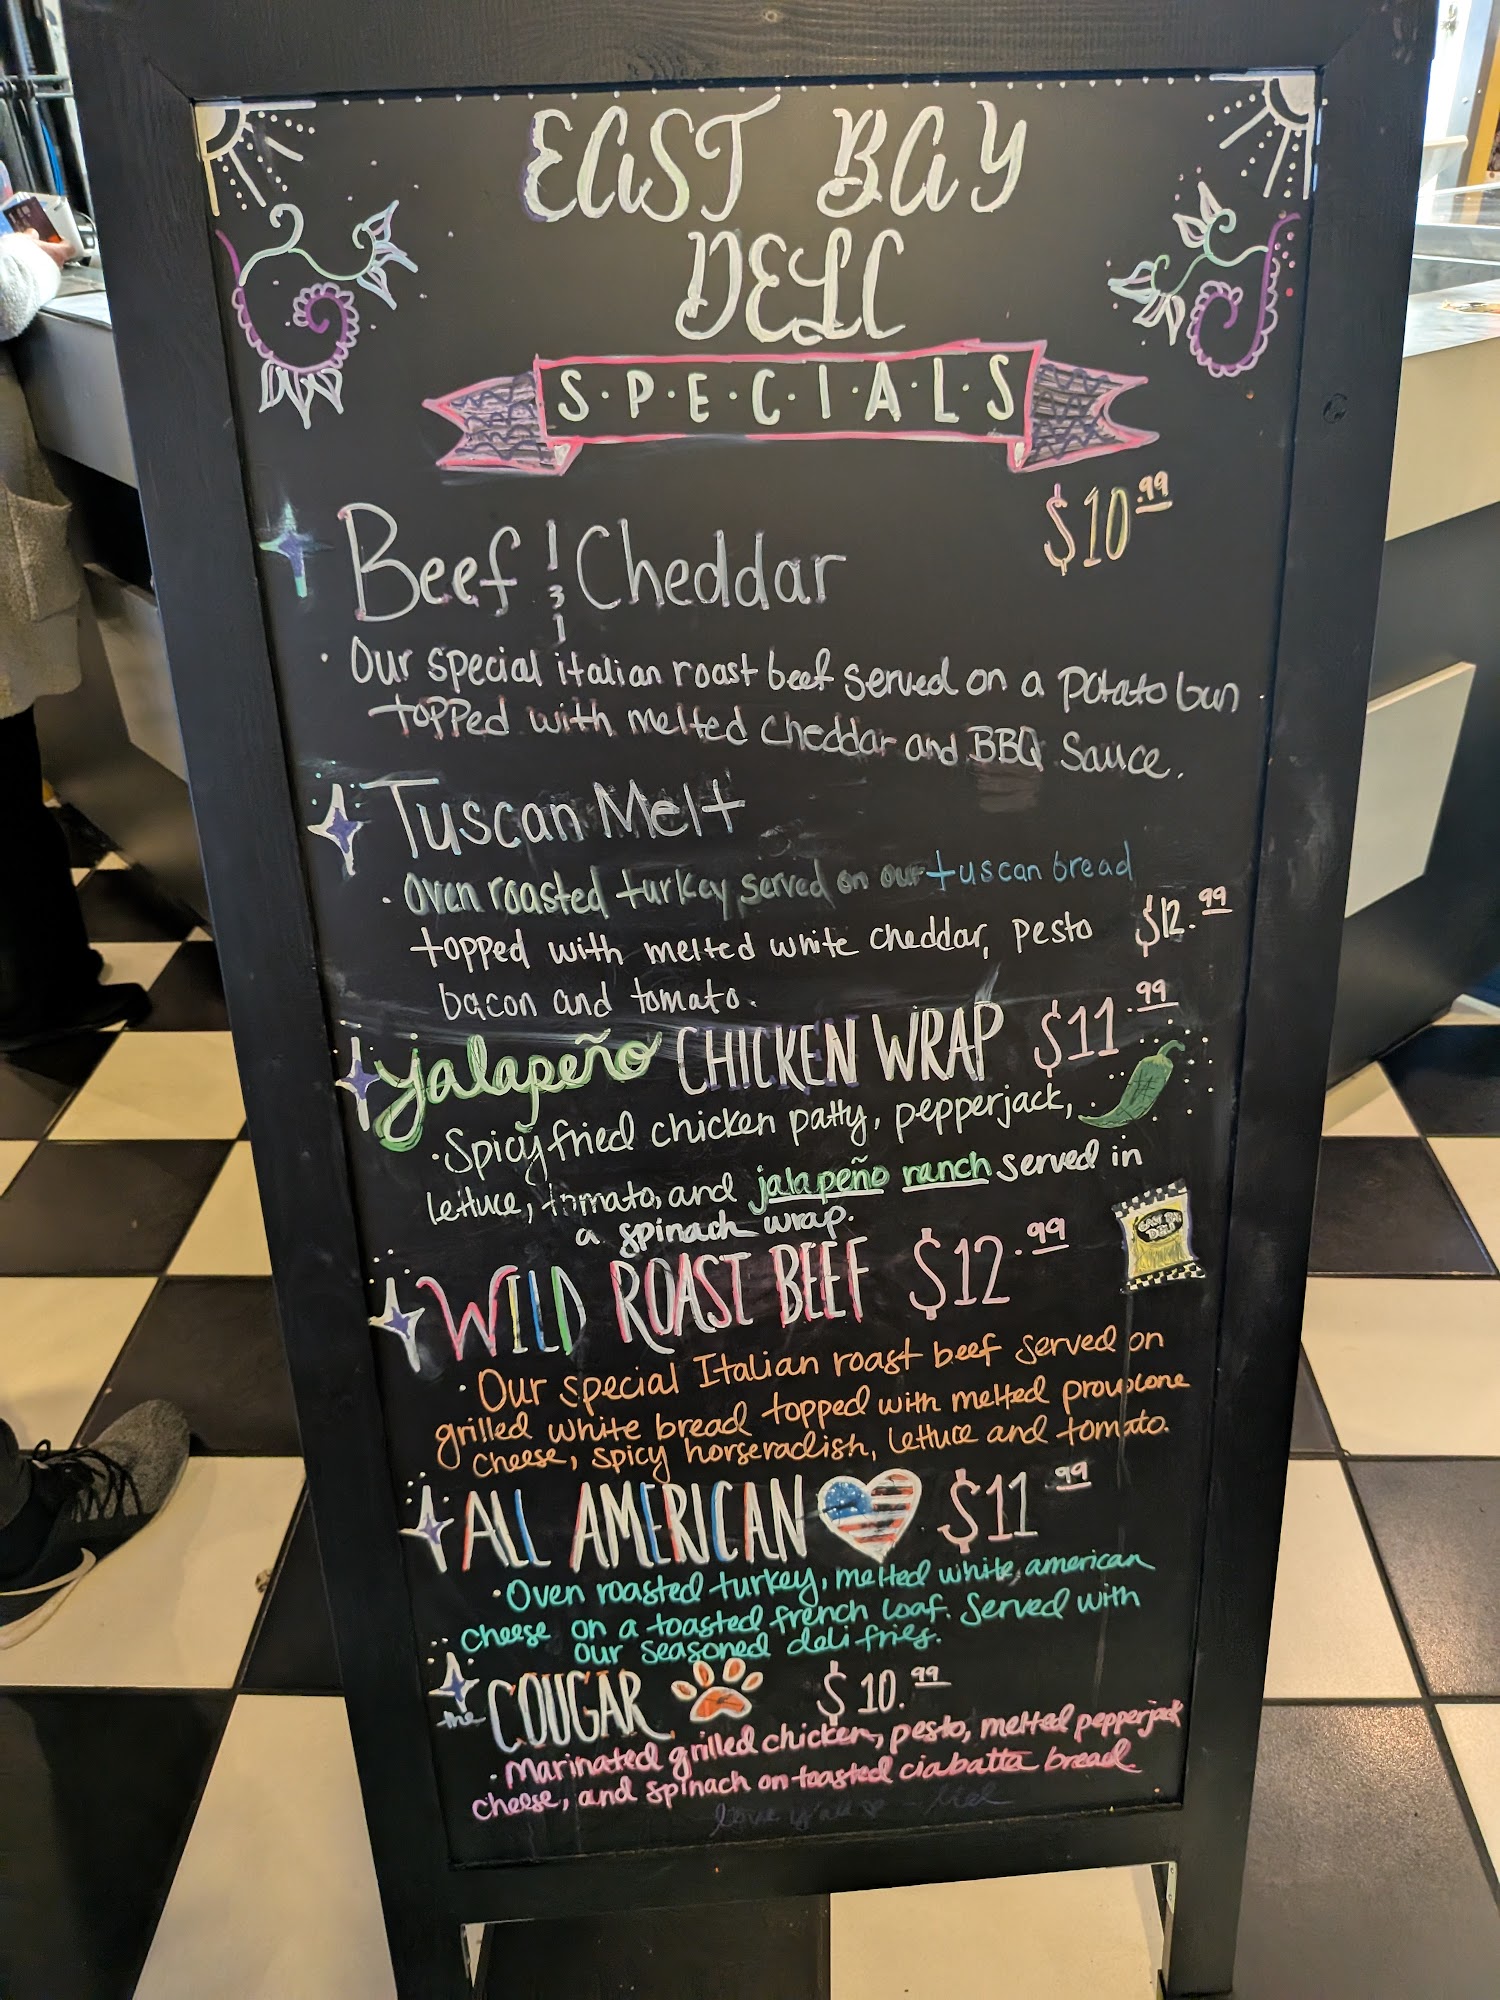 EAST BAY
DELI
S·P·E·C·I·A·L·S
Beef & Cheddar $10.99
· Our special italian roast beef served on a potato bun
topped with melted cheddar and BBQ Sauce.
Tuscan Melt
· Oven roasted turkey served on our tuscan bread
topped with melted white cheddar, pesto $12.99
bacon and tomato.
jalapeño CHICKEN WRAP $11.99
· Spicy fried chicken patty, pepperjack,
lettuce, tomato, and jalapeño ranch served in
a spinach wrap.
EAST BAY
DELI
WILD ROAST BEEF $12.99
· Our special Italian roast beef served on
grilled white bread topped with melted provolone
cheese, spicy horseradish, lettuce and tomato.
ALL AMERICAN $11.99
· Oven roasted turkey, melted white, american
cheese on a toasted french loaf. Served with
our seasoned deli fries.
the COUGAR $10.99
· Marinated grilled chicken, pesto, melted pepperjack
cheese, and spinach on toasted ciabatta bread
love y'all